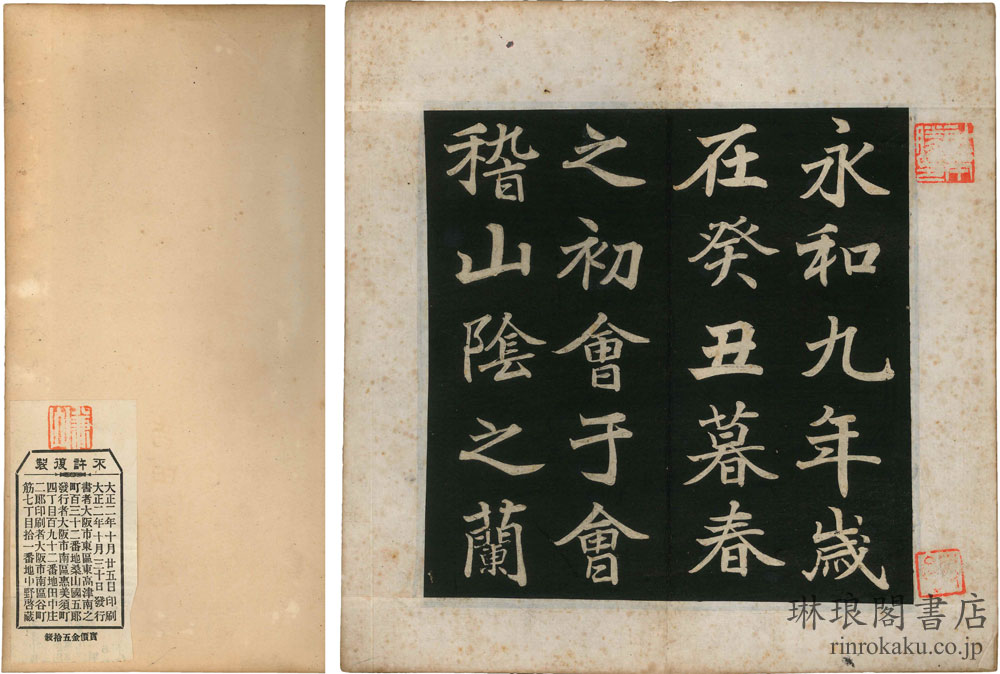 永和九年歲
在癸丑暮春
之初會于會
稽山陰之蘭
不許復製
大正二年十月廿五日印刷
大正二年十月三十日發行
書者大阪市東區東高津南之
町百三十二番地桑山國五郎
發行者大阪市南區惠美須町
四丁目百九十二番地田中庄
二郎印刷者大阪市南區谷町
筋七丁目拾一番地中野啓蔵
實價金五拾錢
琳琅閣書店
rinrokaku.co.jp